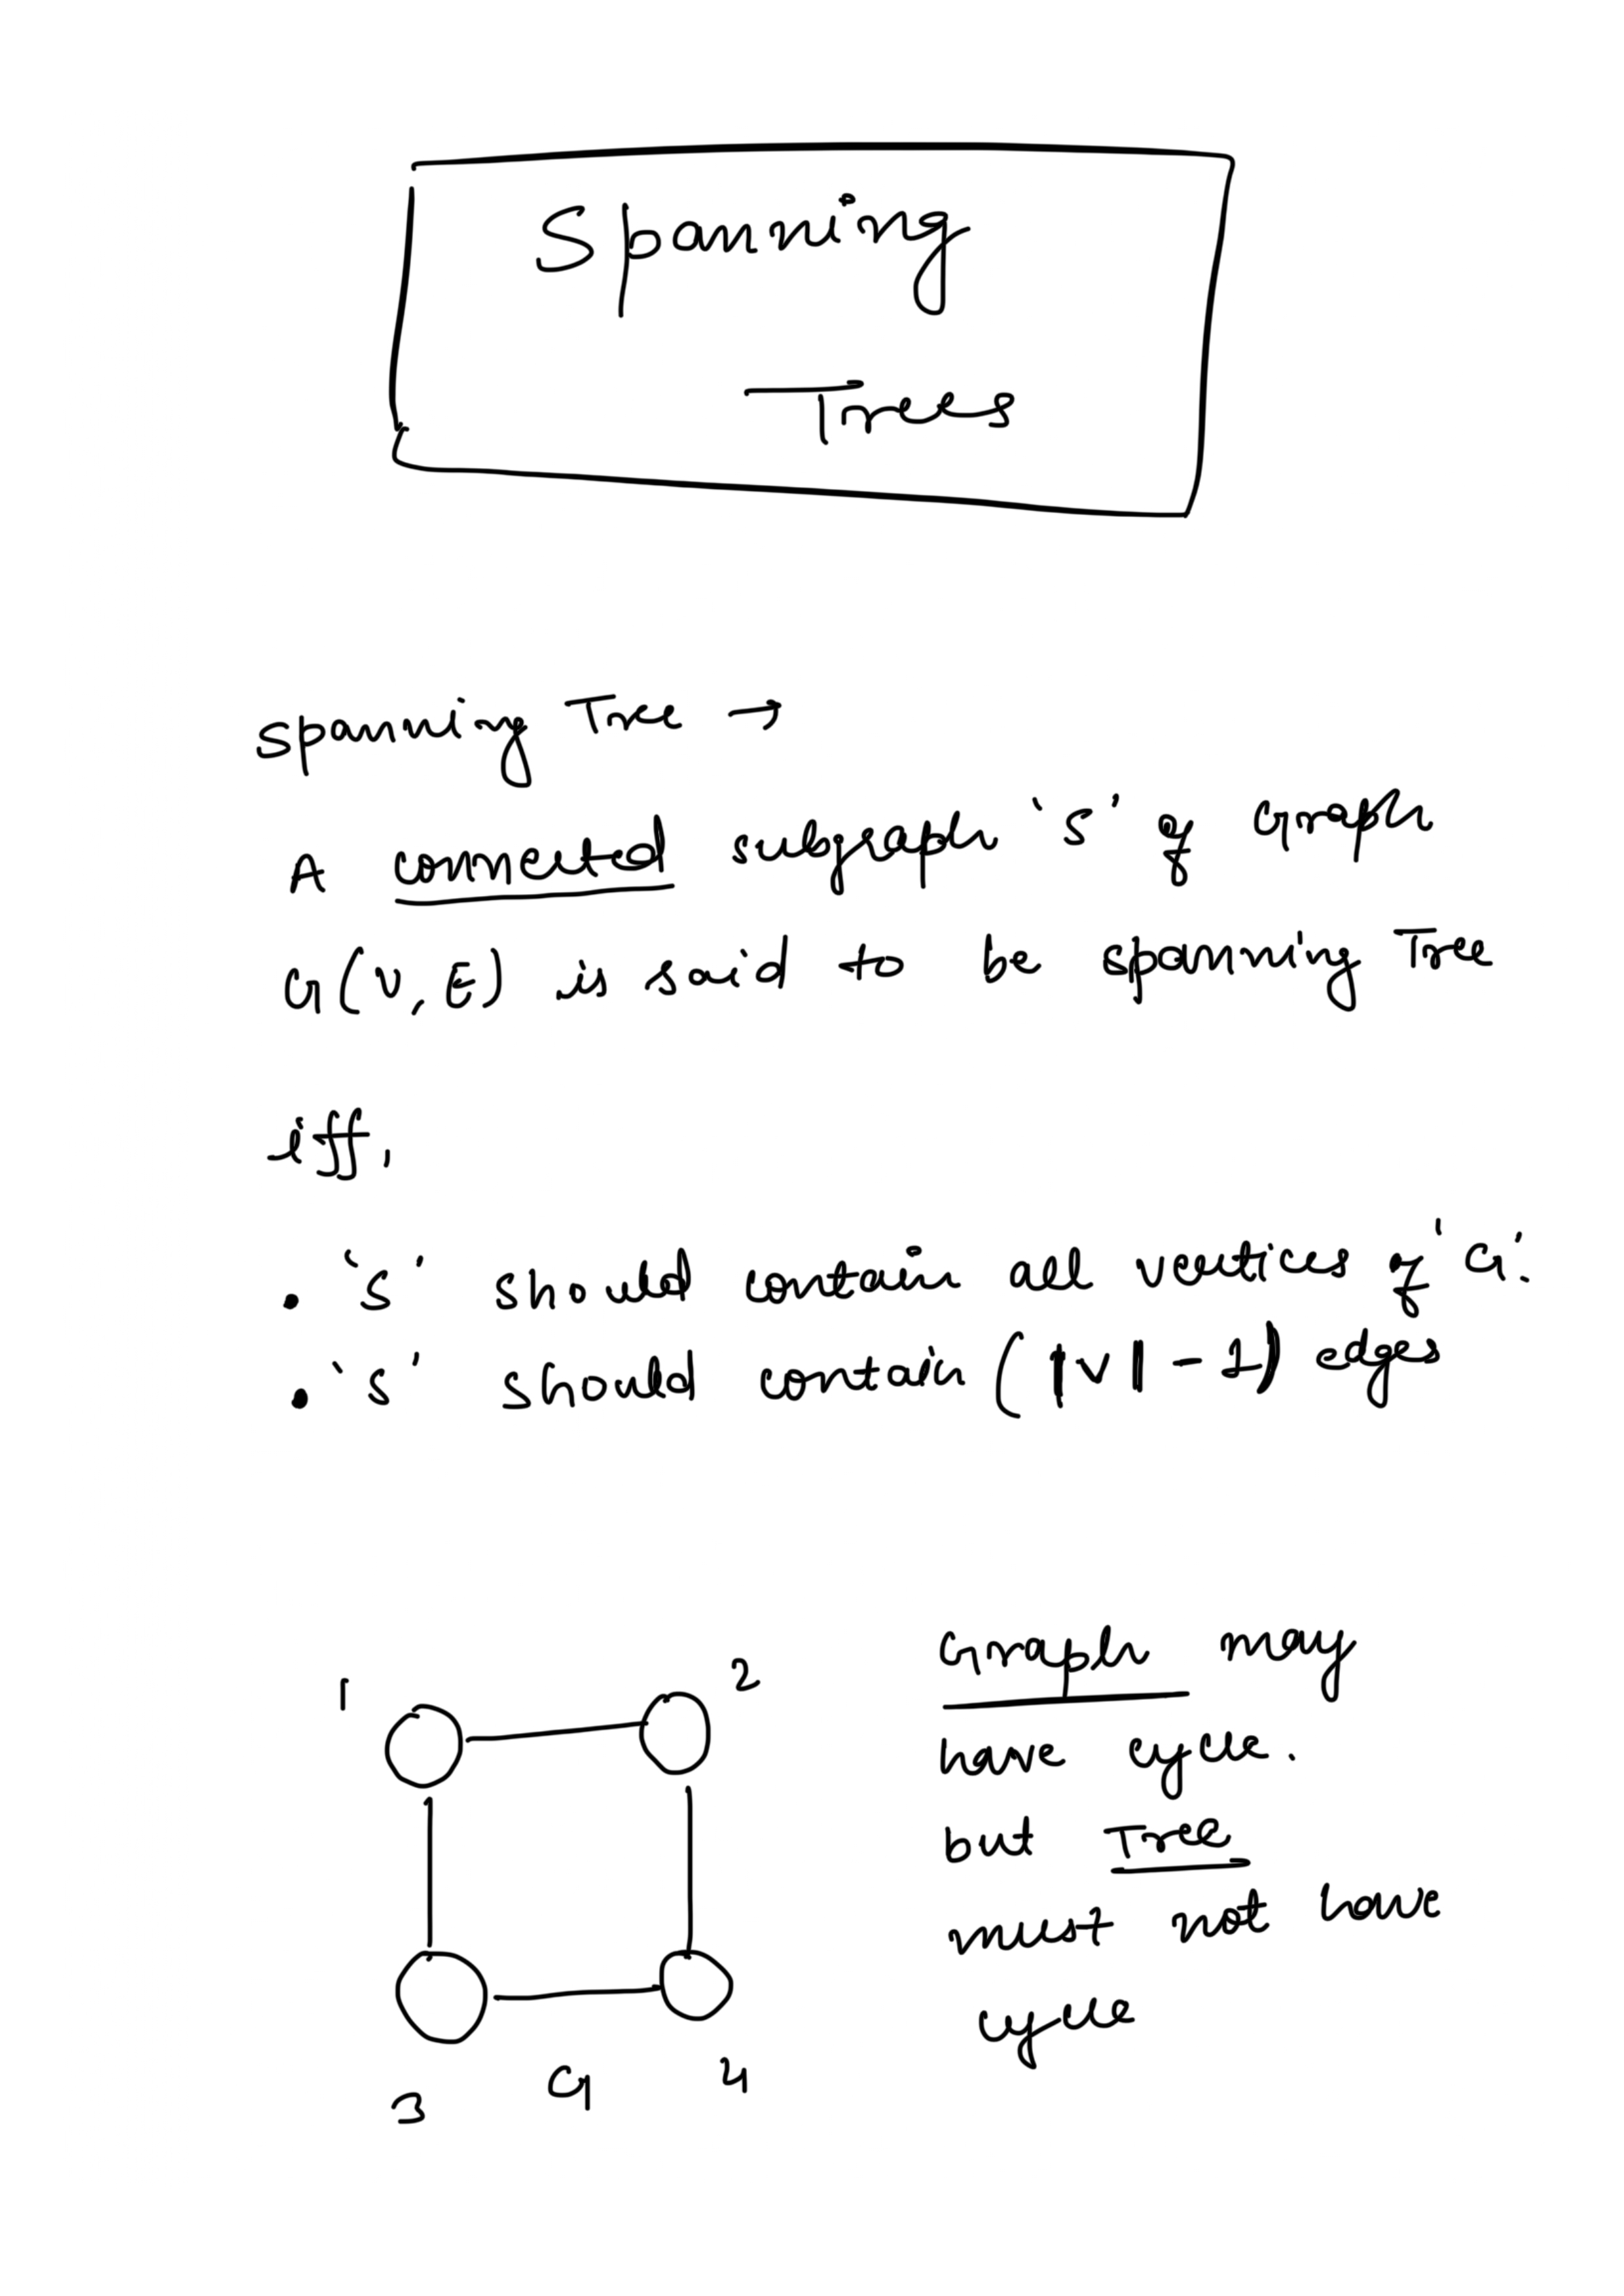 Spanning
Trees
Spanning Tree →
A connected subgraph 's' of Graph
G(V, E) is said to be spanning Tree
iff,
• 's' should contain all vertices of 'G'.
• 's' should contain (||V|| - 1) edges
1
2
3
G
4
Graph may
have cycle.
but Tree
must not have
cycle